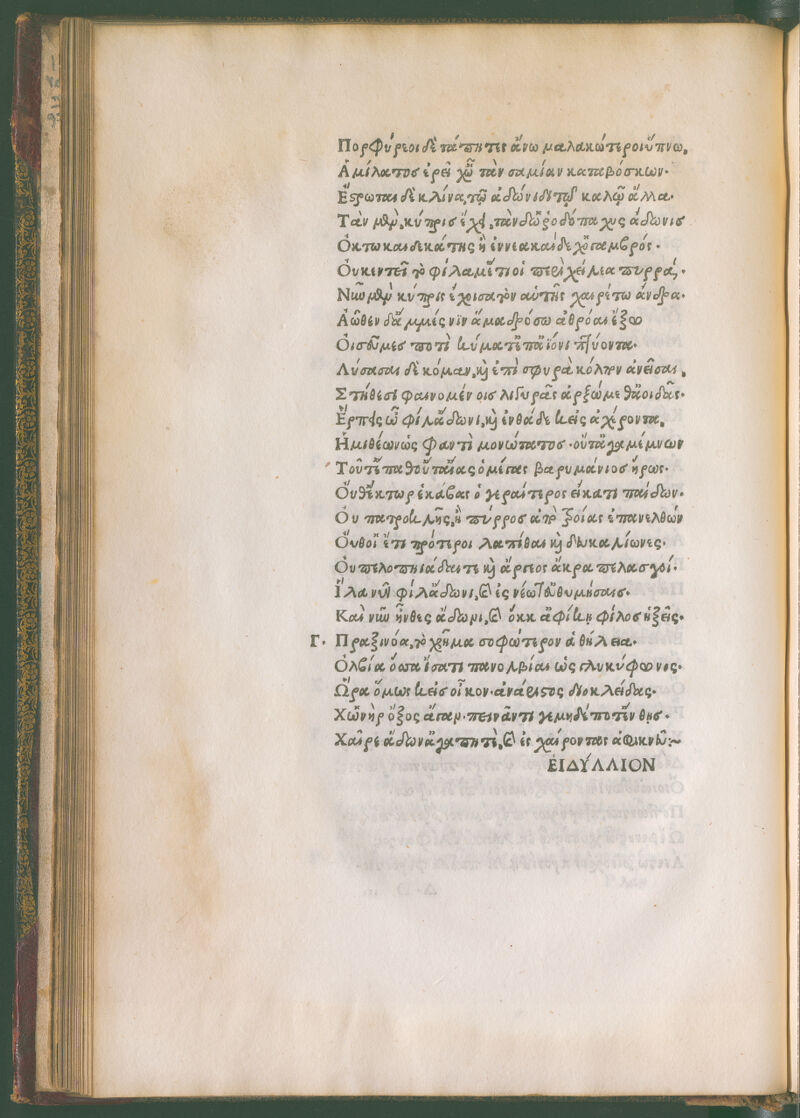 Πορφύρεοι δὲ τάπητες ἄνω μαλακώτεροι ὕπνω.
Ἁ μίλατος ἐρεῖ χὢ τὰν σαμίαν καταβόσκων·
Ἔστρωται δὲ κλίνα, τῷ ἀδώνιδι τῷ καλῷ ἄλλα·
Τὰν μὲν κύπρις ἔχει, τὰν δ' ὁ ῥοδόπαχυς ἄδωνις
Ὀκτωκαιδεκάτης ἢ ἐννιακαίδεχ' ὁ γαμβρός·
Οὐ κεντεῖ τὸ φίλαμ' ἔτι οἱ περὶ χείλεα πυρρά,·
Νῦν μὲν κύπρις ἔχοισα τὸν αὑτῆς χαιρέτω ἄνδρα·
Ἀῶθεν δ' ἄμμες νιν ἅμα δρόσω ἀθρόαι ἔξω
Οἰσεῦμες ποτὶ κύματ' ἐπ' ἀϊόνι πτύοντα·
Λύσασαι δὲ κόμαν, καὶ ἐπὶ σφυρὰ κόλπον ἀνεῖσαι,
Στήθεσι φαινομένοις λιγυρᾶς ἀρξώμεθ' ἀοιδᾶς·
Ἕρπεις ὦ φίλ' ἄδωνι, καὶ ἐνθάδε κεἰς ἀχέροντα,
Ἡμιθέων ὡς φαντὶ μονώτατος· οὔτ' ἀγαμέμνων
Τοῦτ' ἔπαθ' οὔτ' αἴας ὁ μέγας βαρυμάνιος ἥρως·
Οὔθ' ἕκτωρ ἑκάβας ὁ γεραίτερος εἴκατι παίδων·
Οὐ πατροκλῆς, ἢ πύρρος ἀπὸ τροίας ἐπανελθών
Οὔθ' οἳ ἔτι πρότεροι λαπίθαι καὶ δευκαλίωνες·
Οὐ πελοπηιάδαι τε καὶ ἄργεος ἄκρα πελασγοί·
Ἵλαθι νῦν φίλ' ἄδωνι, καὶ ἐς νέωτ' εὐθυμήσαις·
Καὶ νῦν ἦνθες ἄδωνι, καὶ ὅκκ' ἀφίκῃ φίλος ἡξεῖς·
Γ· Πραξινόα, τὸ χρῆμα σοφώτερον ἁ θήλεια·
Ὀλβία ὅσσα ἴσατι πανολβία ὡς γλυκύφωνος·
Ὥρα ὅμως κεἰς οἶκον· ἀνάριστος διοκλείδας·
Χὡνὴρ ὄξος ἅπαν· πεινᾶντι γε μηδέποτ' ἔνθῃς·
Χαῖρε ἄδων ἀγαπητέ, καὶ ἐς χαίροντας ἀφικνεῦ:~
ΕΙΔΎΛΛΙΟΝ